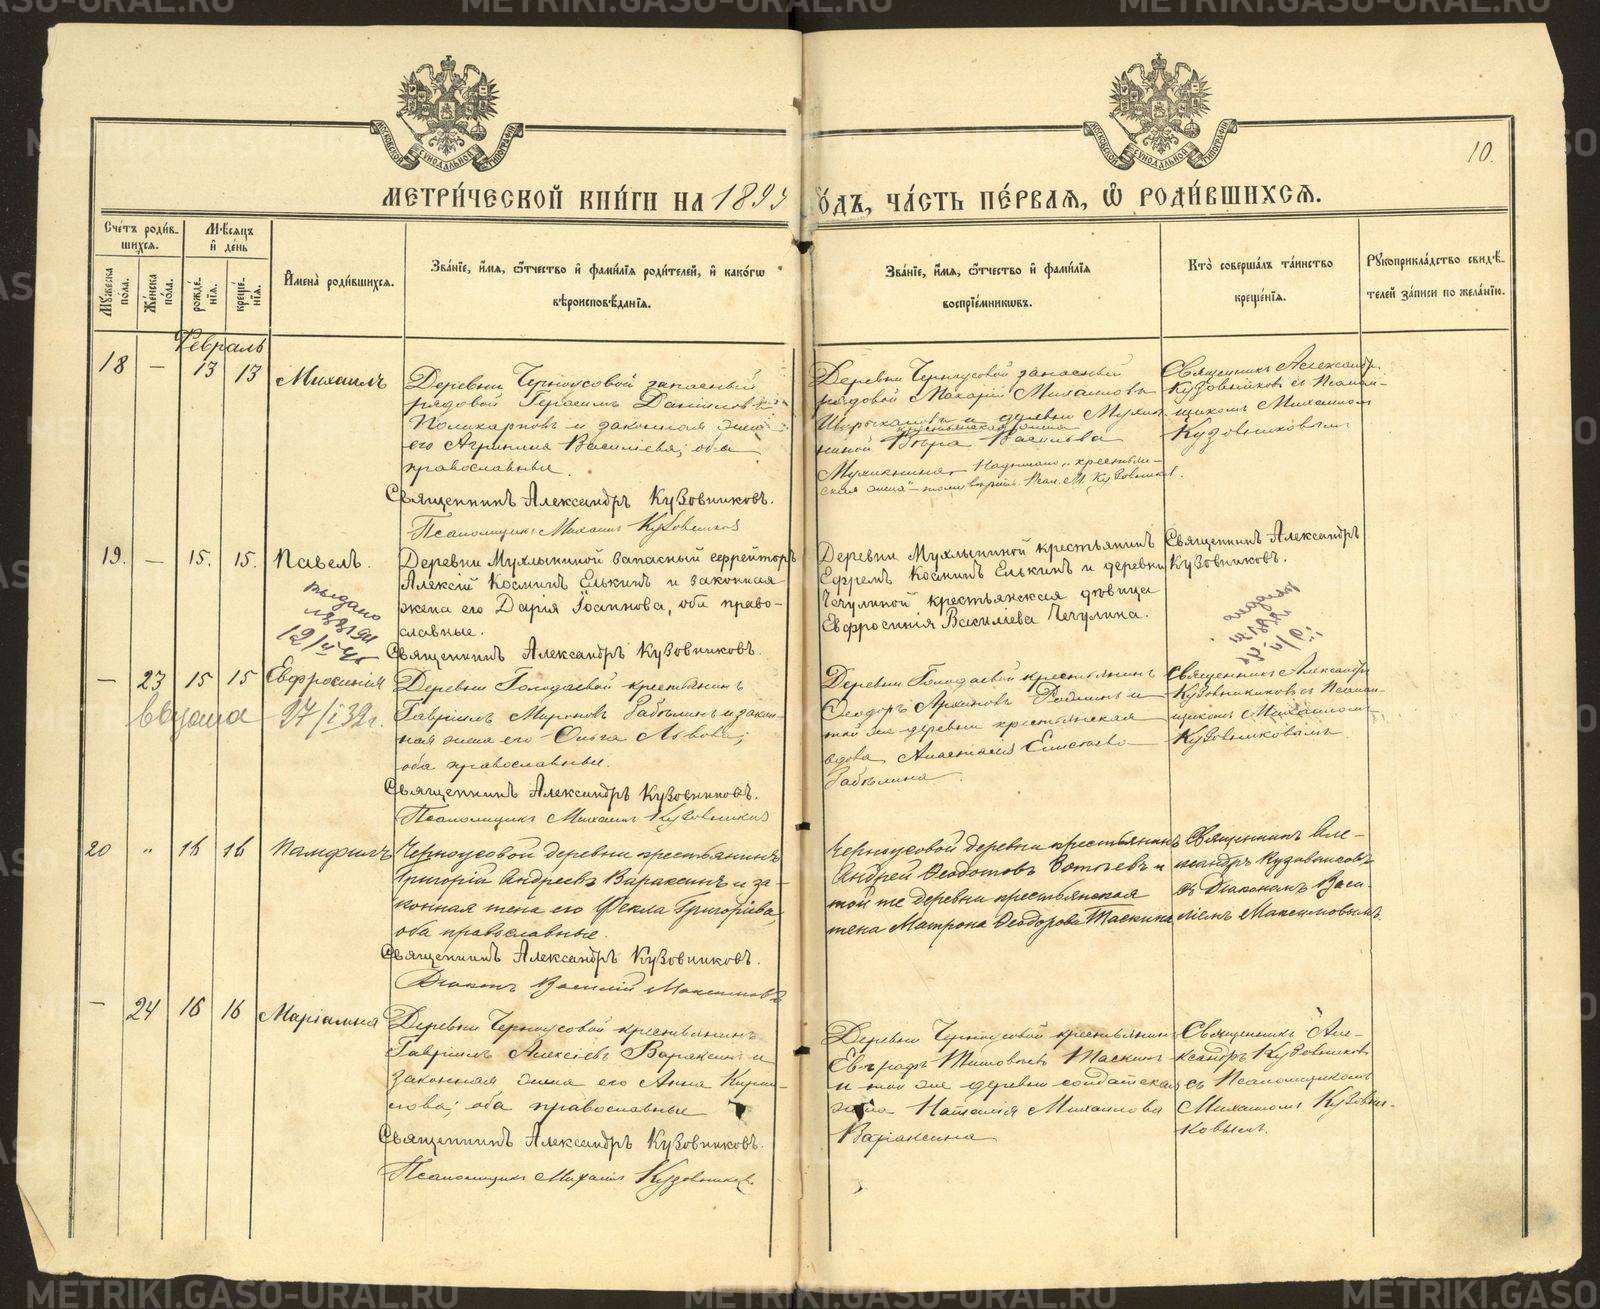 МЕТРИ́ЧЕСКОЙ КНИ́ГИ НА 1899 ГО́ДЪ, ЧА́СТЬ ПЕ́РВАЯ, Ѽ РОДИ́ВШИХСЯ.
10.
МОСКОВСКОЙ СѴНОДАЛЬНОЙ ТИПОГРАФІИ
МОСКОВСКОЙ СѴНОДАЛЬНОЙ ТИПОГРАФІИ
Сче́тъ роди́в-
шихся.
Мѣ́сяцъ
и҆ де́нь
Му́жеска
по́ла.
Же́нска
по́ла.
рожде́-
нїя.
креще́-
нїя.
И҆мена̀ роди́вшихся.
Зва́нїе, и҆́мя, ѻ҆́тчество и҆ фами́лїя роди́телей, и҆ како́гѡ
вѣроисповѣ́данїя.
Зва́нїе, и҆́мя, ѻ҆́тчество и҆ фами́лїя
воспрїе́мникѡвъ.
Кто̀ соверша́лъ та́инство
креще́нїя.
Рꙋкоприкла́дство свидѣ́-
телей за́писи по жела́нїю.
Февраль
18 — 13 13 Михаилъ
Деревни Черноусовой запасный
рядовой Герасимъ Даниловъ
Поликарповъ и законная жена
его Агрипина Васильева, оба
православные.
Священникъ Александръ Кузовниковъ.
Псаломщикъ Михаилъ Кузовниковъ
Деревни Черноусовой запасный
рядовой Макарій Михаиловъ
и деревни Мухлы-
крестьянская жена
ниной Вѣра Васильева
Мухлынина. Надписано „крестьян-
ская жена"
Священникъ Александръ
Кузовниковъ съ Псалом-
щикомъ Михаиломъ
Кузовниковымъ
19. — 15. 15. Павелъ.
Деревни Мухлыниной запасный ефрейторъ
Алексій Косминъ Елькинъ и законная
жена его Дарія Іоаннова, оба право-
славные.
Священникъ Александръ Кузовниковъ.
Деревни Мухлыниной крестьянинъ
Ефремъ Косминъ Елькинъ и деревни
Чечулиной крестьянская дѣвица
Евфросинія Василіева Чечулина.
Священникъ Александръ
Кузовниковъ.
выдано
выдано
— 23 15 15 Евфросинія
выдана 27/I 32 г.
Деревни Голодаевой крестьянинъ
Гавріилъ Мироновъ Забѣлинъ и закон-
ная жена его Ольга Львова;
оба православные.
Священникъ Александръ Кузовниковъ.
Псаломщикъ Михаилъ Кузовниковъ
Деревни Голодаевой крестьянинъ
Ѳеодоръ Архиповъ и
той же деревни крестьянская
вдова Анастасія Елисеева
Забѣлина.
Священникъ Александръ
Кузовниковъ съ Псалом-
щикомъ Михаиломъ
Кузовниковымъ
20 „ 16 16 Памфилъ
Черноусовой деревни крестьянинъ
Григорій Андреевъ Вараксинъ и за-
конная жена его Ѳекла Григоріева,
оба православные.
Священникъ Александръ Кузовниковъ.
Діаконъ Василій Максимовъ
Черноусовой деревни крестьянинъ
Андрей Ѳедотовъ Зотьевъ и
той же деревни крестьянская
жена Матрона Ѳеодорова Таскина
Священникъ Але-
ксандръ Кузовниковъ
съ Діакономъ Васи-
ліемъ Максимовымъ
— 24 16 16 Маріамна
Деревни Черноусовой крестьянинъ
Гавріилъ Алексіевъ Вараксинъ и
законная жена его Анна Кирил-
лова; оба православные
Священникъ Александръ Кузовниковъ.
Псаломщикъ Михаилъ Кузовниковъ
Деревни Черноусовой крестьянинъ
Евграфъ Таскинъ
и той же деревни солдатская
жена Наталія Михаилова
Вараксина
Священникъ Але-
ксандръ Кузовниковъ
съ Псаломщикомъ
Михаиломъ Кузовни-
ковымъ.
METRIKI.GASO-URAL.RU